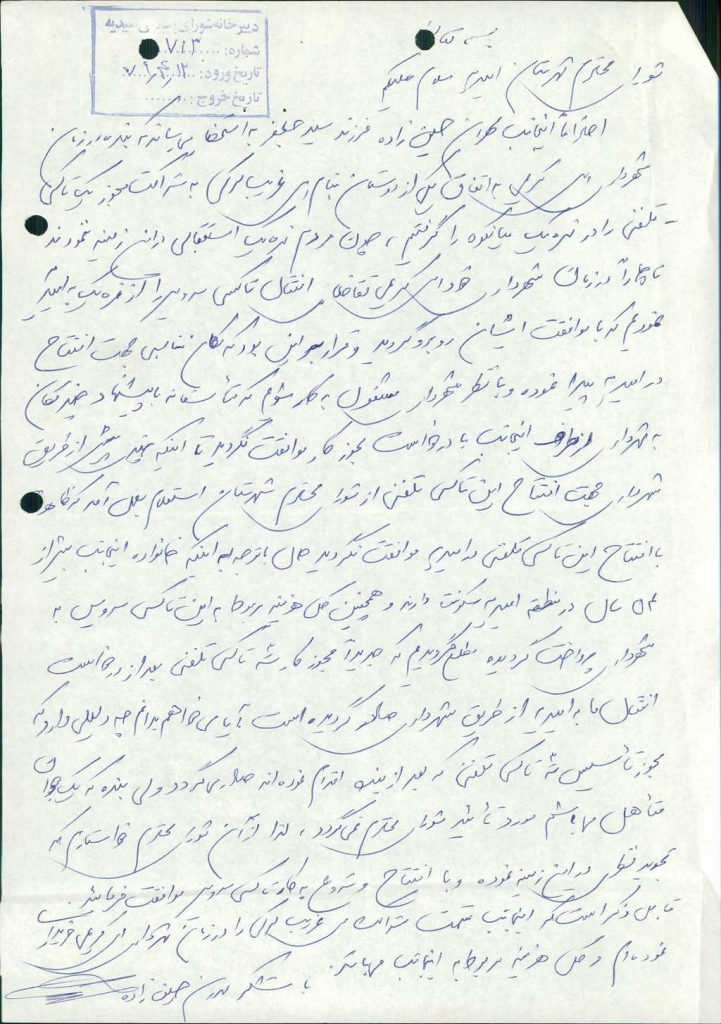 دبیرخانه شورای
شماره: ۷۱۳
تاریخ ورود:
تاریخ خروج:
بسمه تعالی
شورای محترم شهرستان امیدیه سلام علیکم
احتراماً اینجانب حسین زاده فرزند سید جعفر به استحضار میرساند که بنده در زمان
شهرداری به اتفاق یکی از دوستان بنام غریب به شراکت مجوز یک تاکسی
تلفنی را در میانکوه را گرفتیم ، چون مردم استقبالی در این زمینه ننمودند
ناچاراً در زمان شهرداری تقاضای انتقال تاکسی سرویس را از به امیدیه
نمودیم که با موافقت ایشان روبرو گردید و قرار بر این بود که مکان مناسبی جهت افتتاح
در امیدیه پیدا نموده و با نظر شهرداری مشغول به کار شوم که متأسفانه با پیشنهاد چند مکان
به شهرداری از طرف اینجانب با درخواست مجوز کار موافقت نگردید تا اینکه از طریق
شهرداری جهت افتتاح این تاکسی تلفنی از شورای محترم شهرستان استعلام بعمل آمد که ظاهراً
با افتتاح این تاکسی تلفنی در امیدیه موافقت نگردید حال با توجه به اینکه خانواده اینجانب بیش از
سال در منطقه امیدیه سکونت دارند و همچنین کل هزینه مربوط به این تاکسی سرویس به
شهرداری پرداخت گردیده مطلع گردیدیم که جدیداً مجوز کار سه تاکسی تلفنی بعد از درخواست
انتقال ما به امیدیه از طریق شهرداری صادر گردیده است ، آیا می خواهم بدانم چه دلیلی دارد که
مجوز تأسیس سه تاکسی تلفنی که بعد از بنده اقدام نموده اند صادر می گردد ولی بنده که یک جوان
متأهل میباشم مورد تأئید شورای محترم نمی گردد ، لذا از آن شورای محترم خواستارم که
تجدید نظری در این زمینه نموده و با افتتاح و شروع به کار تاکسی سرویس موافقت فرمائید .
قابل ذکر است که اینجانب قسمت شراکت غریب را در زمان شهرداری خریداری
نموده ام و کل هزینه مربوط به اینجانب میباشد .
با تشکر حسین زاده